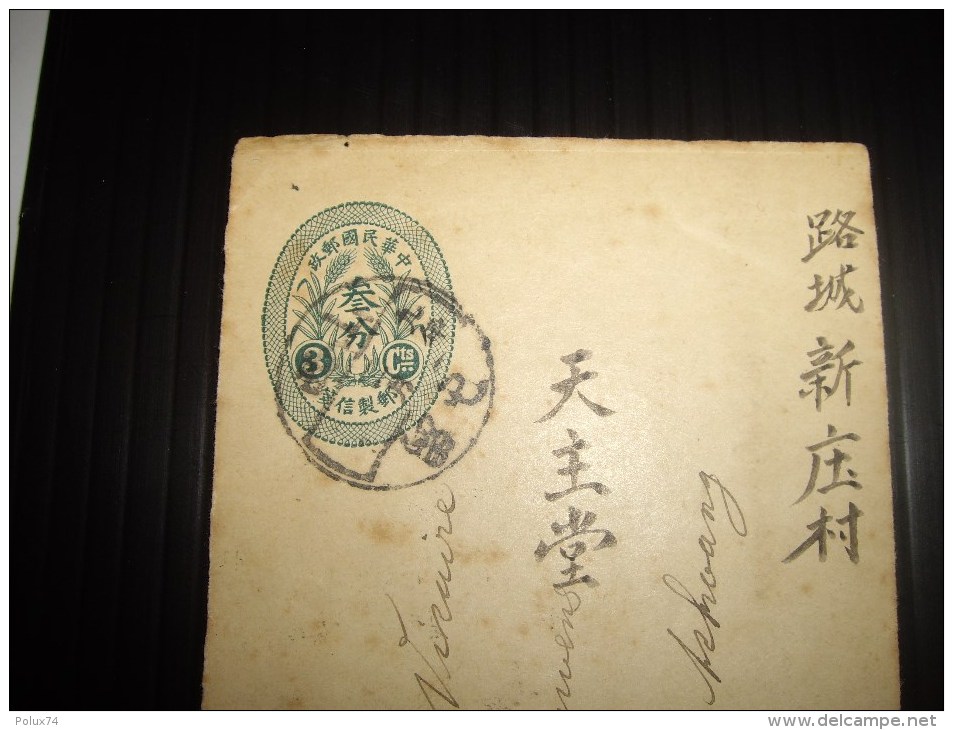 中華民國郵政
叁分
3 Cts
郵製信箋
路城新庄村
天主堂
Vicaire
Polux74
www.delcampe.net